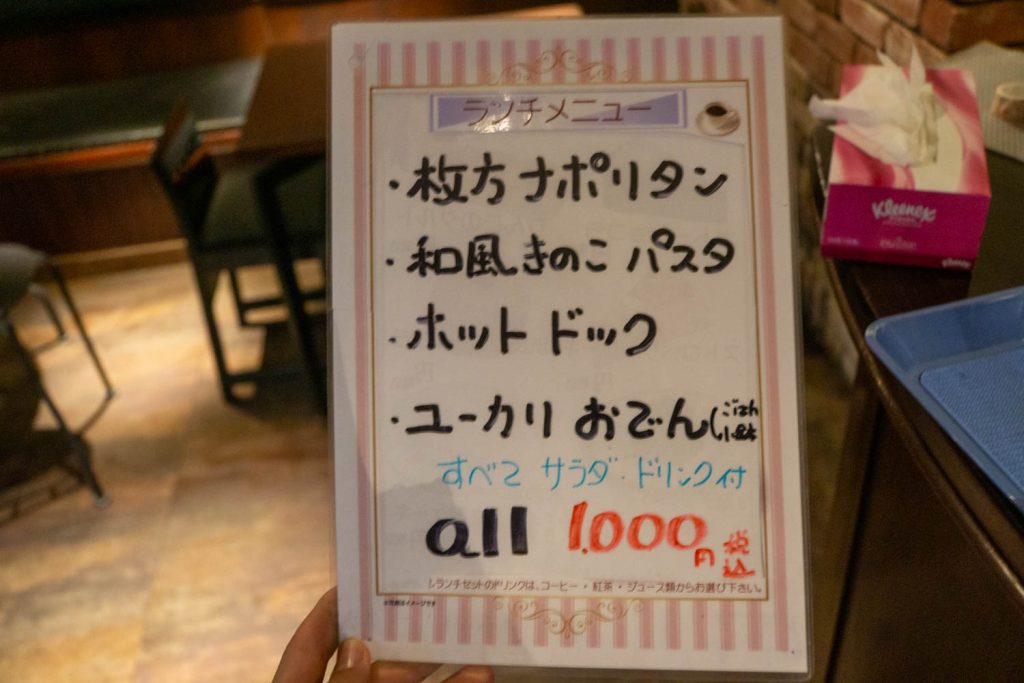 ランチメニュー
・枚方ナポリタン
・和風きのこ パスタ
・ホット ドック
・ユーカリ おでん(ごはん
小鉢
すべて サラダ・ドリンク付
all 1.000円 税込
ランチセットのドリンクは、コーヒー・紅茶・ジュース類からお選び下さい。
※写真はイメージです
Kleenex
Kleenex